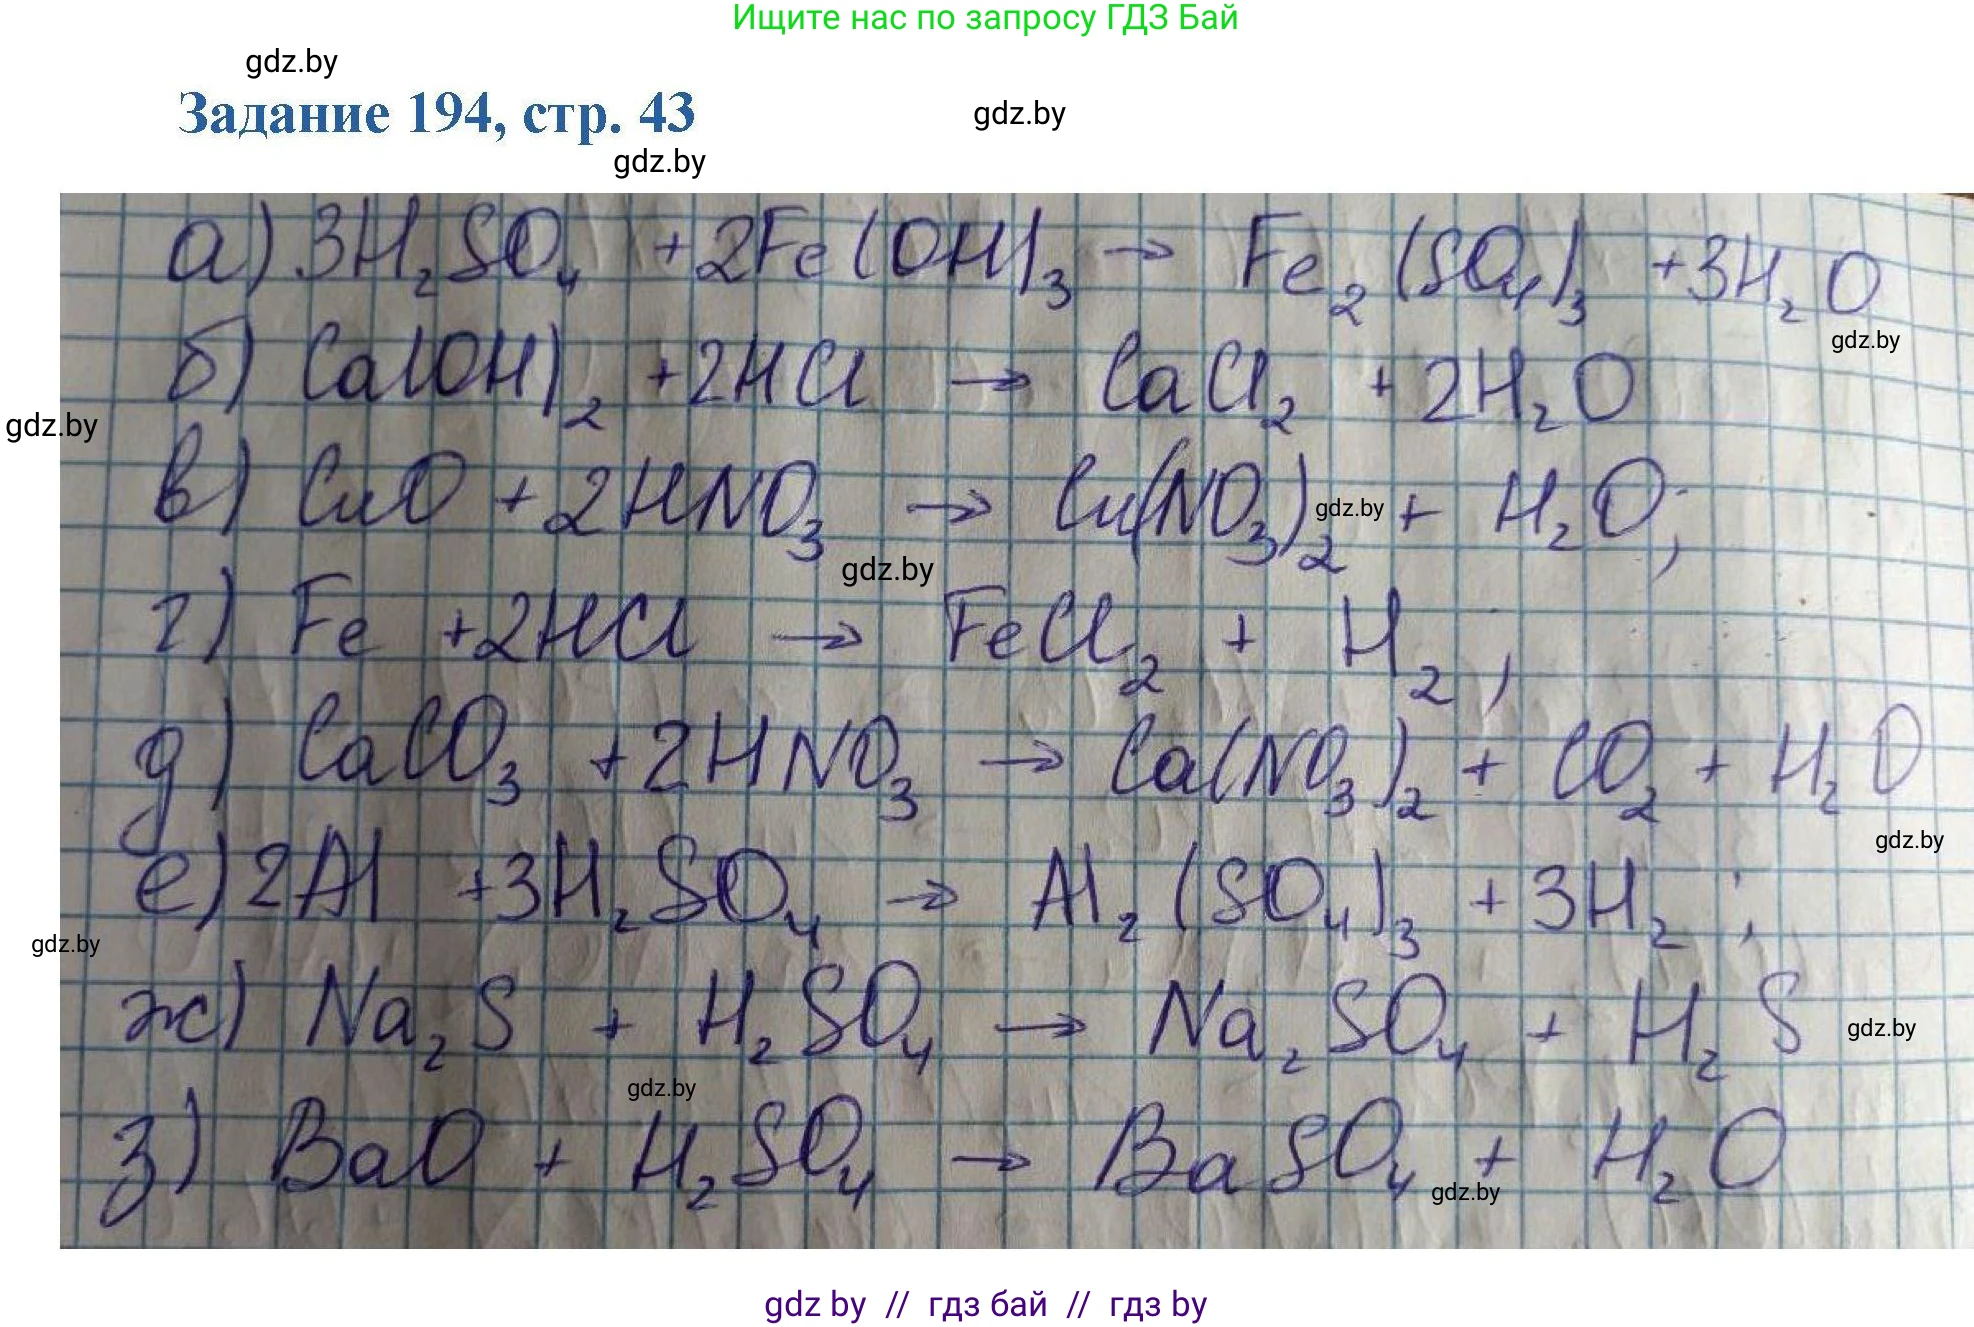 Ищите нас по запросу ГДЗ Бай
gdz.by
Задание 194, стр. 43
gdz.by
gdz.by
а) 3H₂SO₄ + 2Fe(OH)₃ → Fe₂(SO₄)₃ + 3H₂O
gdz.by
б) Ca(OH)₂ + 2HCl → CaCl₂ + 2H₂O
gdz.by
в) CuO + 2HNO₃ → Cu(NO₃)₂ + H₂O;
gdz.by
gdz.by
г) Fe + 2HCl → FeCl₂ + H₂,
д) CaCO₃ + 2HNO₃ → Ca(NO₃)₂ + CO₂ + H₂O
gdz.by
е) 2Al + 3H₂SO₄ → Al₂(SO₄)₃ + 3H₂;
gdz.by
ж) Na₂S + H₂SO₄ → Na₂SO₄ + H₂S
gdz.by
gdz.by
з) BaO + H₂SO₄ → BaSO₄ + H₂O
gdz.by
gdz by // гдз бай // гдз by